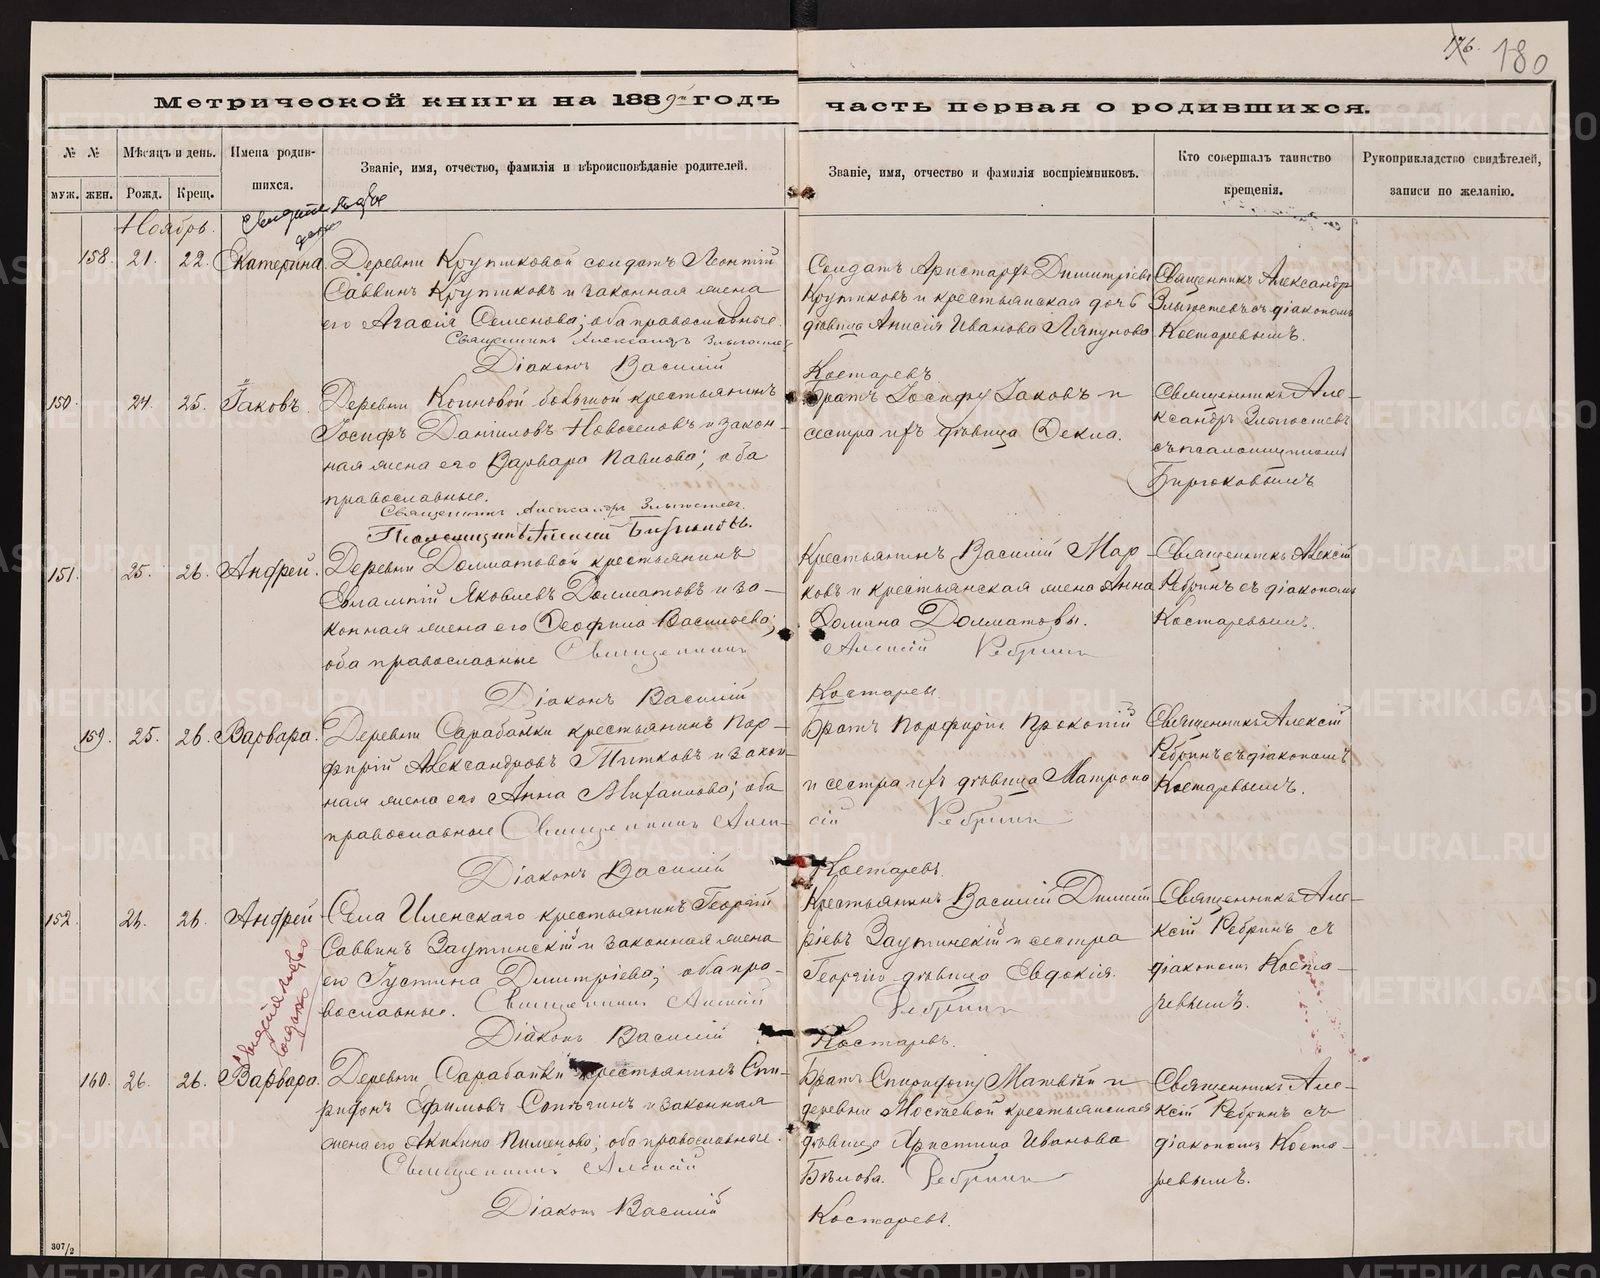 176. 180
Метрической книги на 1889й годъ часть первая о родившихся.
№ № Мѣсяцъ и день. Имена родившихся. Званіе, имя, отчество, фамилія и вѣроисповѣданіе родителей. Званіе, имя, отчество и фамилія воспріемниковъ. Кто совершалъ таинство крещенія. Рукоприкладство свидѣтелей, записи по желанію.
муж. жен. Рожд. Крещ.
Ноябрь.
158. 21. 22. Екатерина.
Деревни Крутиковой солдатъ Леонтій
Саввинъ Крутиковъ и законная жена
его Агафія Семенова; оба православные.
Священникъ Александръ Злыгостевъ
Діаконъ Василій Костаревъ
Солдатъ Аристархъ Димитріевъ
Крутиковъ и крестьянская дочь
дѣвица Анисія Иванова Ляпунова
Священникъ Александръ
Злыгостевъ съ діакономъ
Костаревымъ.
150. 24. 25. Іаковъ.
Деревни Кочневой большой крестьянинъ
Іосифъ Даніиловъ Новоселовъ и закон-
ная жена его Варвара Павлова; оба
православные.
Священникъ Александръ Злыгостевъ.
Псаломщикъ
Братъ Іосифу Іаковъ и
сестра ихъ дѣвица Ѳекла.
Священникъ Але-
ксандръ Злыгостевъ
съ псаломщикомъ
151. 25. 26. Андрей.
Деревни Долматовой крестьянинъ
Евлампій Яковлевъ Долматовъ и за-
конная жена его Ѳеофила Васильева;
оба православные Священникъ Алексій Ребринъ
Діаконъ Василій Костаревъ.
Крестьянинъ Василій Мар-
ковъ и крестьянская жена Анна
Ѳомина Долматовы.
Священникъ Алексій
Ребринъ съ діакономъ
Костаревымъ.
159. 25. 26. Варвара.
Деревни Сарабайки крестьянинъ Пор-
фирій Александровъ Титковъ и закон-
ная жена его Анна Михаилова; оба
православные Священникъ Алексій Ребринъ
Діаконъ Василій Костаревъ.
Братъ Порфирія Прокопій
и сестра ихъ дѣвица Матрона
Священникъ Алексій
Ребринъ съ діакономъ
Костаревымъ.
152. 26. 26. Андрей
Села Иленскаго крестьянинъ Георгій
Саввинъ Заутинскій и законная жена
его Іустина Димитріева; оба пра-
вославные. Священникъ Алексій Ребринъ
Діаконъ Василій Костаревъ.
Крестьянинъ Василій Димит-
ріевъ Заутинскій и сестра
Георгію дѣвица Евдокія.
Священникъ Але-
ксій Ребринъ съ
діакономъ Коста-
ревымъ.
160. 26. 26. Варвара.
Деревни Сарабайки крестьянинъ Спи-
ридонъ Ефимовъ Сопѣгинъ и законная
жена его Акилина Пименова; оба православные.
Священникъ Алексій Ребринъ
Діаконъ Василій Костаревъ.
Братъ Спиридону Матвѣй и
деревни Мостовой крестьянская
дѣвица Христина Иванова
Бѣлова.
Священникъ Але-
ксій Ребринъ съ
діакономъ Коста-
ревымъ.
307/2
METRIKI.GASO-URAL.RU